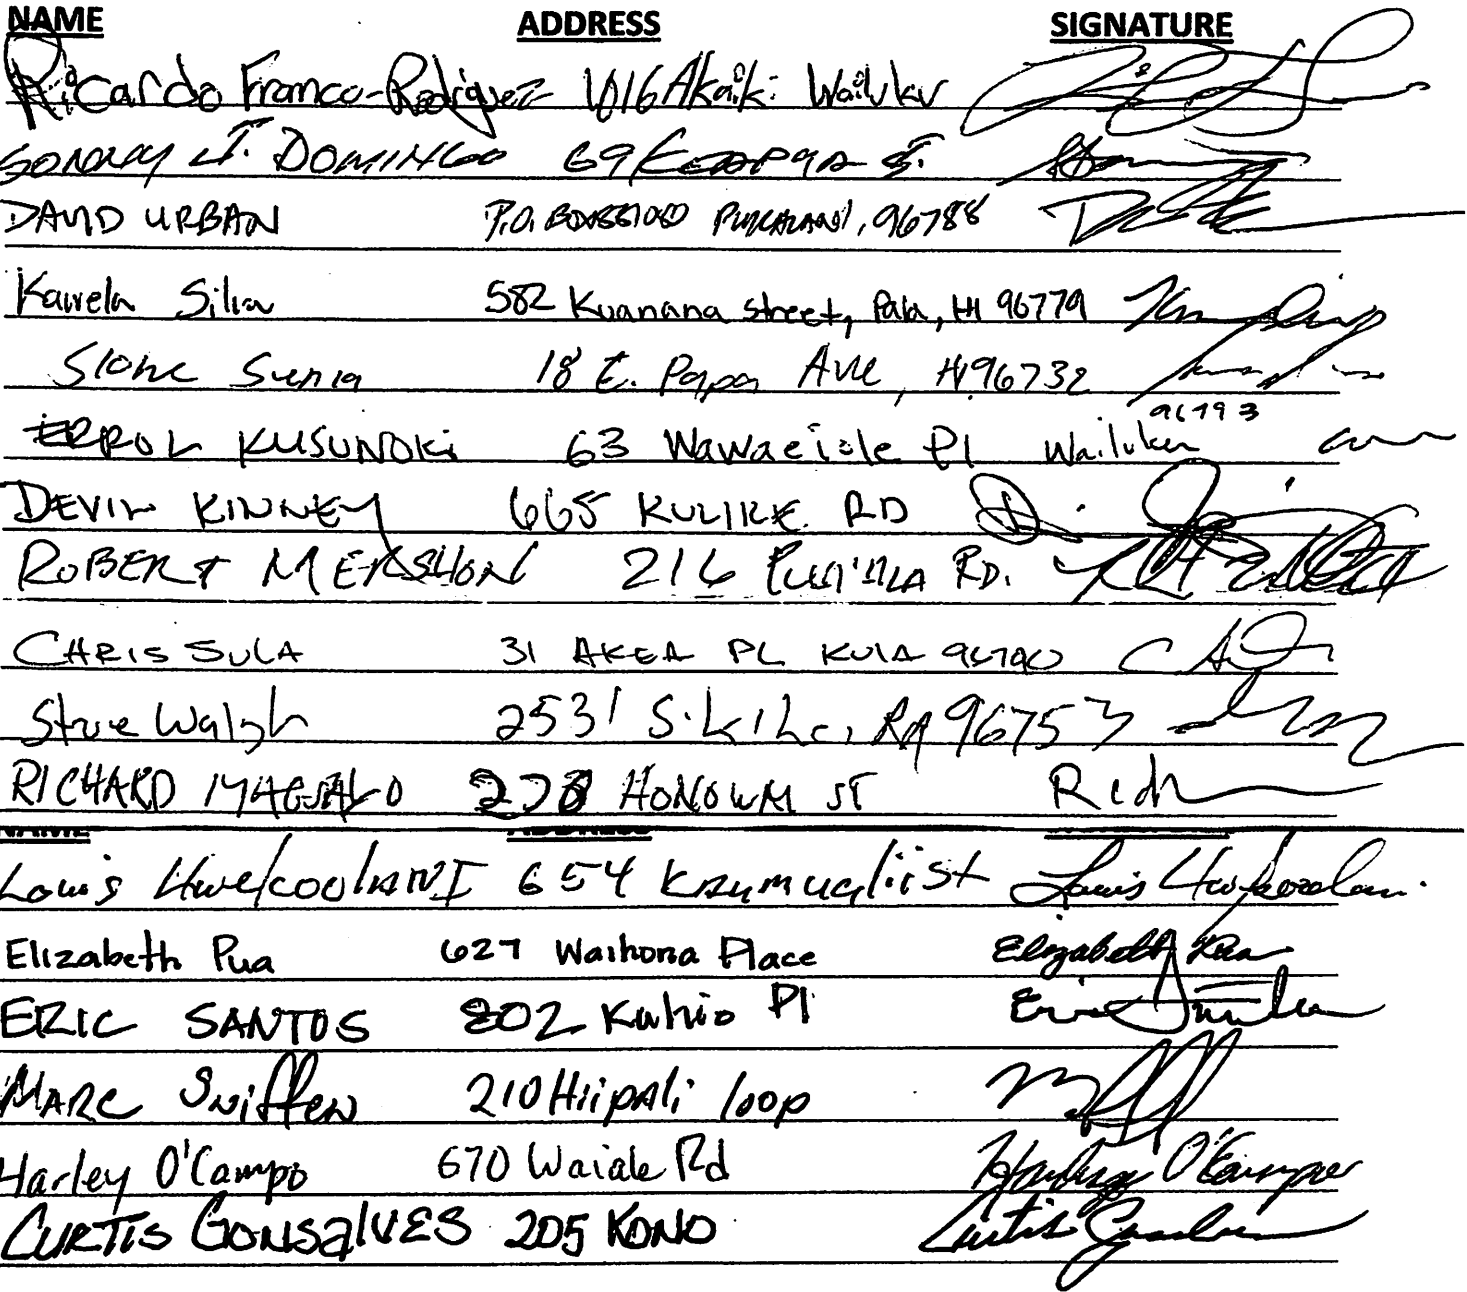 NAME ADDRESS SIGNATURE
Ricardo Franco-Rodriguez 1016 Akaiki Wailuku
SONNY J. DOMINGO 69
DAVID URBAN P.O. BOX PUKALANI, 96788
Kawela Silva 582 Kuanana Street, Paia, HI 96779
Sione Sunia 18 E. Papa Ave, HI 96732
96793
ERROL KUSUNOKI 63 Wawaeiole Pl Wailuku
DEVIN KINNEY 665 KULIKE RD
ROBERT MERSHON 216 RD.
CHRIS SULA 31 AKEA PL KULA 96790
Steve Walsh 2531 96753
RICHARD 278 ST Rich
NAME ADDRESS
Louis 654 st Louis
Elizabeth Pua 627 Waihona Place Elizabeth Pua
ERIC SANTOS 802 Kuhio Pl Eric
MARC Sniffen 210 Hiipali loop
Harley O'Campo 670 Waiale Rd Harley O'Campo
CURTIS GONSALVES 205 KONO Curtis